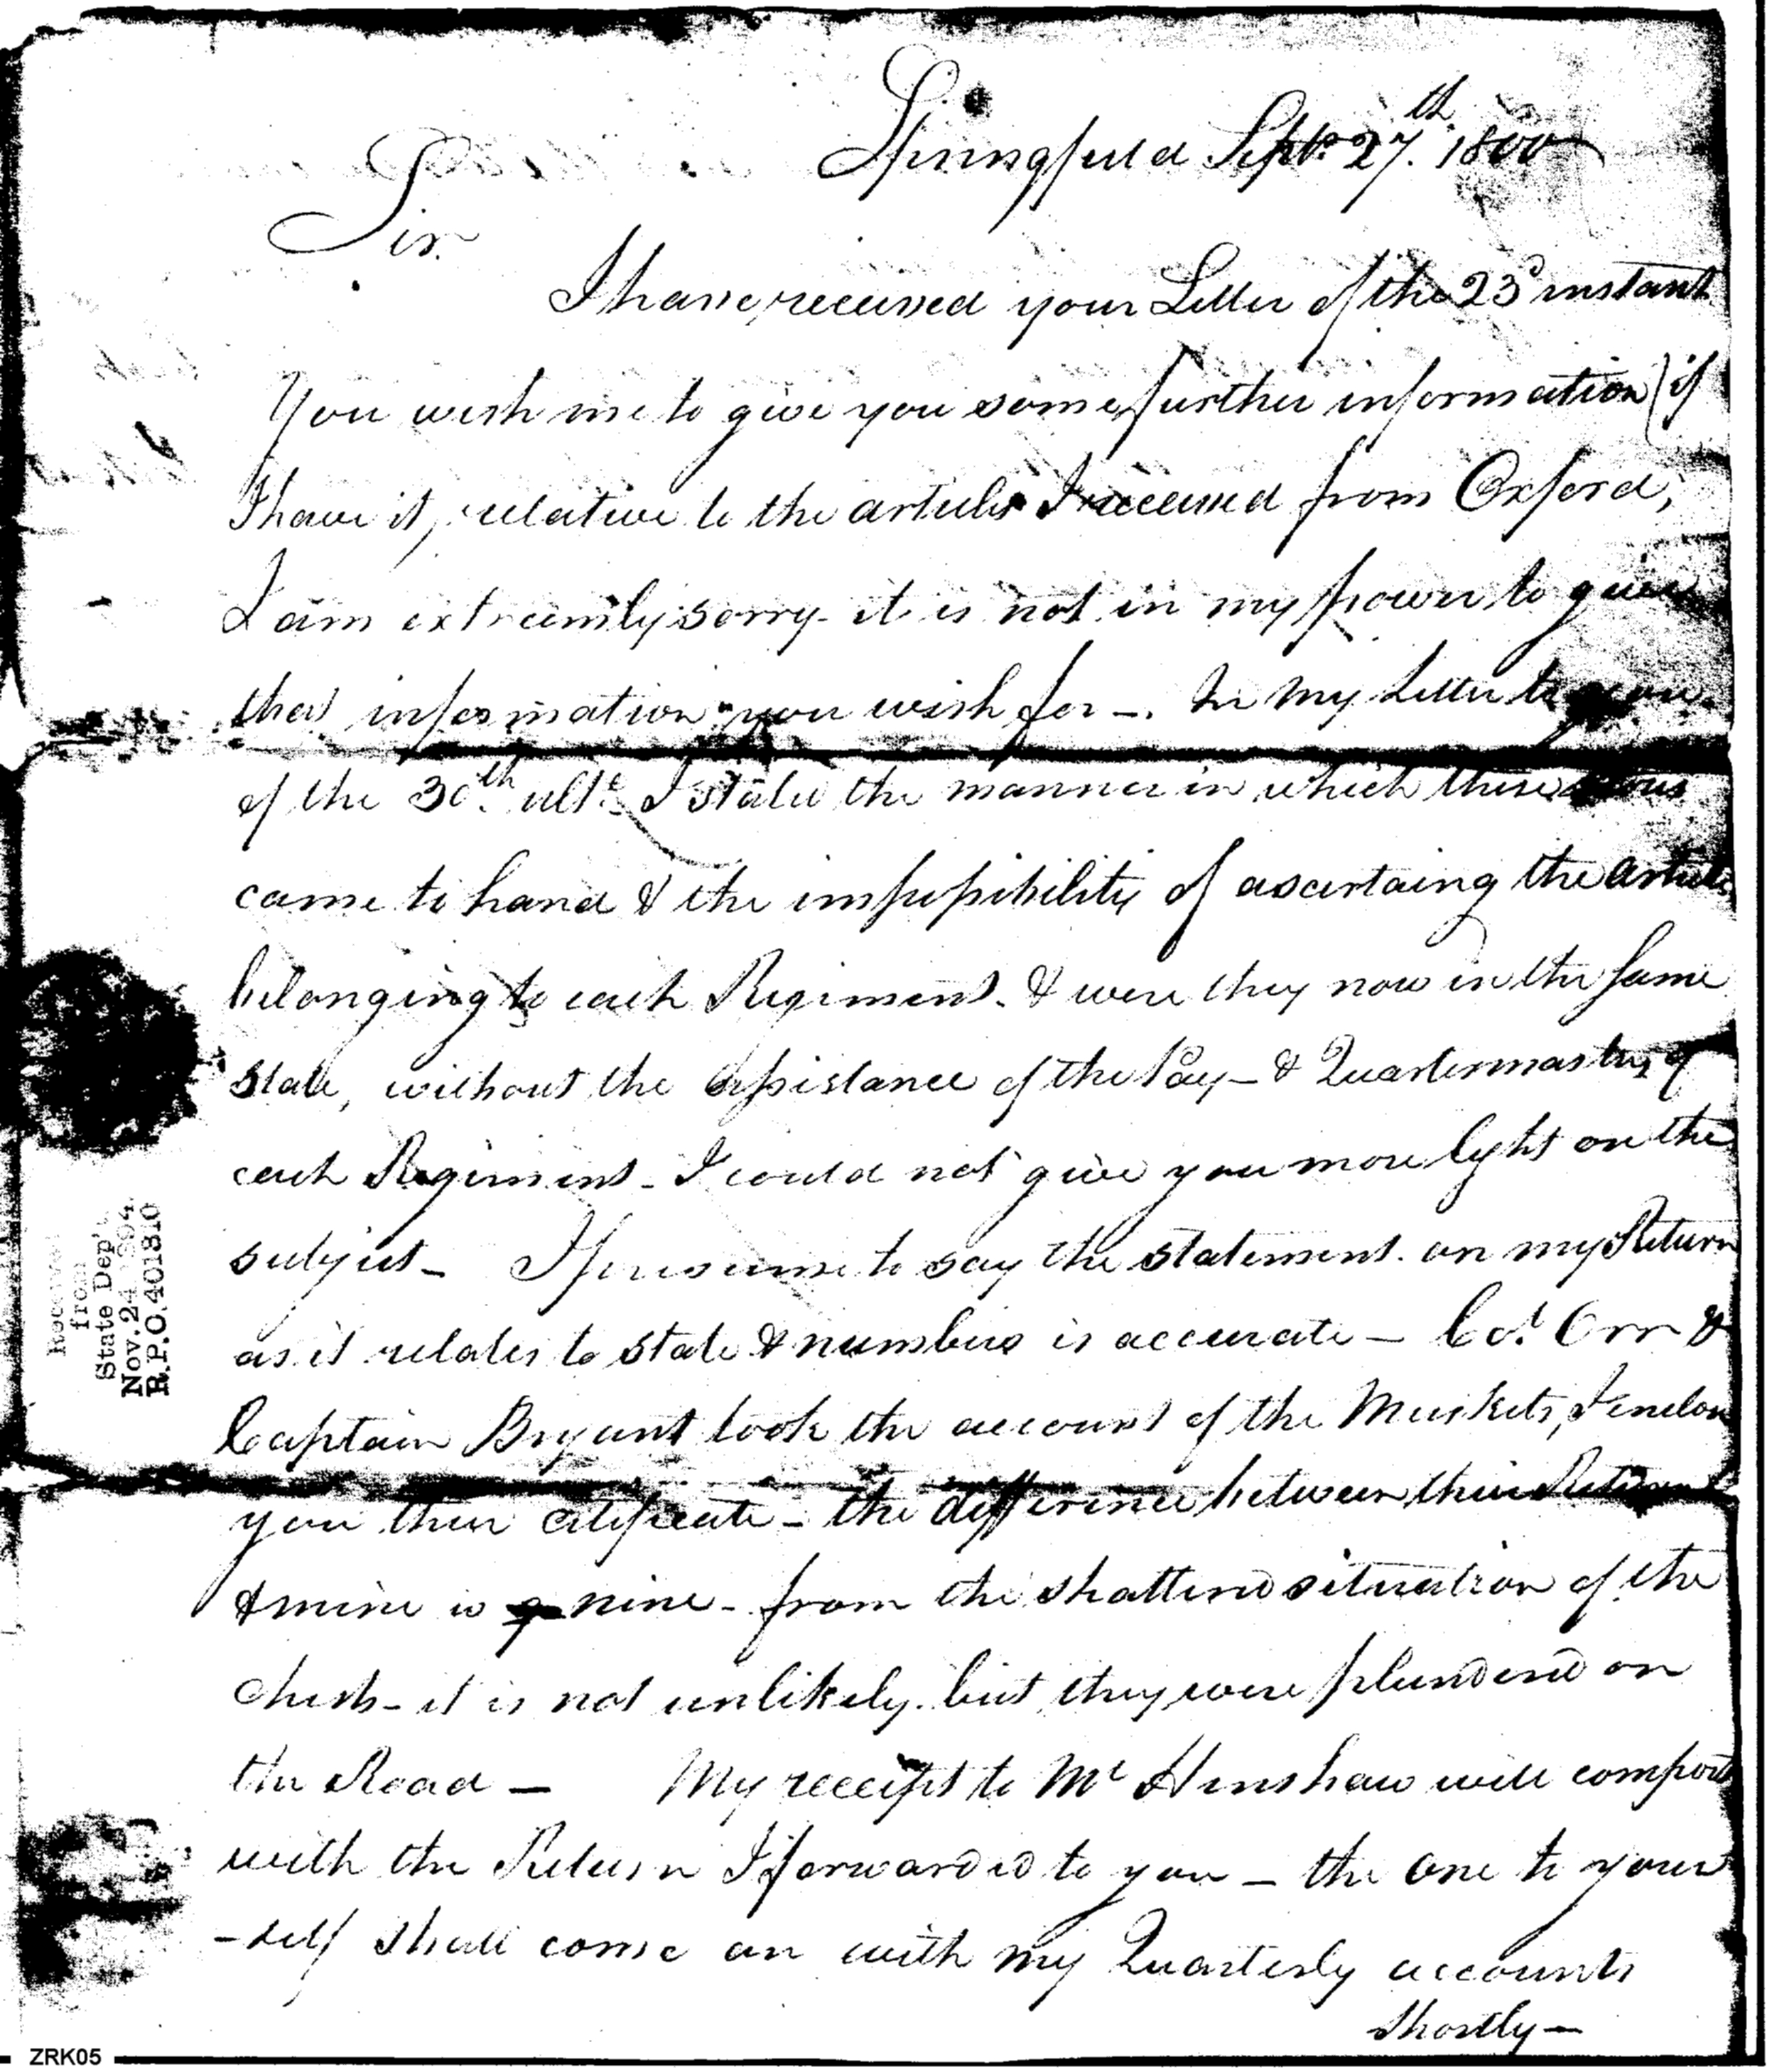 Springfield Septr. 27th. 1800
Sir.
I have received your Letter of the 23d instant
You wish me to give you some further information (if
I have it, relative to the articles I received from Oxford,
I am extreemly sorry it is not in my power to give
that information you wish for -. In my Letter to you
of the 30th. ulto. I stated the manner in which these
came to hand & the impossibility of ascertaing the article
belonging to each Regiment. & were they now in the same
state, without the assistance of the Pay - & Quartermasters of
each Regiment - I could not give you more light on the
subject - I presume to say the statement. on my Return
as it relates to state & numbers is accurate - Col. Orr &
Captain Bryant took the account of the Muskets, I enclose
you their certificate - the difference between their Return
& mine is nine - from the shattered situation of the
chests - it is not unlikely. but they were plundered on
the Road - My receipt to Mr Henshaw will comport
with the Return I forwarded to you - the one to your
-self shall come on with my Quarterly accounts
shortly -
Received
from
State Dep't
Nov. 24 1894
R.P.O. 401810
ZRK05